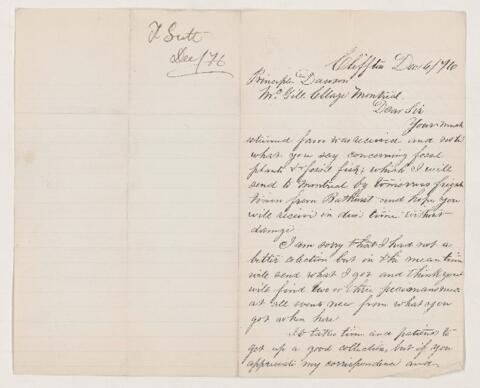 F Sutt
Dec/76
Cliffton Dec 6/76
Principle Dawson
Mc Gill Collage Montrial
Dear Sir
Your much
esteemed favor was received and note
what you say concerning fosel
plants & fosil fish; which I will
send to Montreal by tomorrows freight
train from Bathurst and hope you
will receive in due time without
damage
I am sorry that I had not a
better celection but in the mean time
will send what I got and think you
will find two or three
at all events new from what you
got when here
It takes time and patiens to
get up a good collection, but if you
appreciate my correspondence and